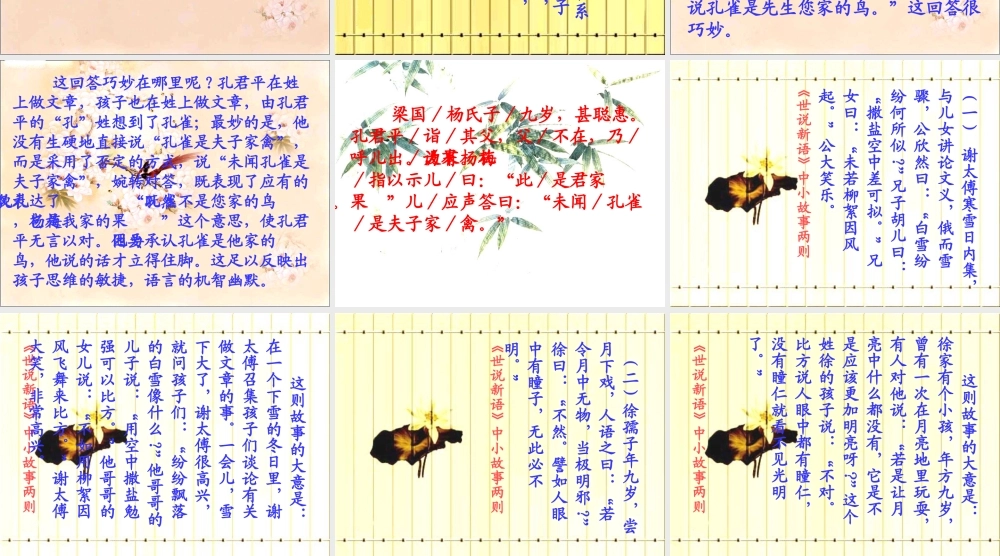 子系
说孔雀是先生您家的鸟。”这回答很
巧妙。
这回答巧妙在哪里呢？孔君平在姓
上做文章，孩子也在姓上做文章，由孔君
平的“孔”姓想到了孔雀；最妙的是，他
没有生硬地直接说“孔雀是夫子家禽”，
而是采用了否定的方式，说“未闻孔雀是
夫子家禽”，婉转对答，既表现了应有的
表达了“既然孔雀不是您家的鸟
，杨梅我家的果 ”这个意思，使孔君
平无言以对。因为承认孔雀是他家的
鸟，他说的话才立得住脚。这足以反映出
孩子思维的敏捷，语言的机智幽默。
梁国/杨氏子/九岁，甚聪惠。
孔君平/诣/其父，父/不在，乃/
呼儿出。为设果/有杨梅
/指以示儿/曰：“此/是君家
果 ”儿/应声答曰：“未闻/孔雀
/是夫子家/禽。”
（一） 谢太傅寒雪日内集，
与儿女讲论文义，俄而雪
骤，公欣然曰：“白雪纷
纷何所似？”兄子胡儿曰：
“撒盐空中差可拟。”兄
女曰：“未若柳絮因风
起。”公大笑乐。
《世说新语》中小故事两则
这则故事的大意是：
在一个下雪的冬日里，谢
太傅召集孩子们谈论有关
做文章的事。一会儿，雪
下大了，谢太傅很高兴，
就问孩子们：“纷纷飘落
的白雪像什么？”他哥哥的
儿子说：“用空中撒盐勉
强可以比方。”他哥哥的
女儿说：“不如用柳絮因
风飞舞来比方。”谢太傅
大笑，非常高兴。
《世说新语》中小故事两则
（二）徐孺子年九岁，尝
月下戏，人语之曰：“若
令月中无物，当极明邪？”
徐曰：“不然。譬如人眼
中有瞳子，无此必不
明。”
《世说新语》中小故事两则
这则故事的大意是：
徐家有个小孩，年方九岁，
曾有一次在月亮地里玩耍，
有人对他说：“若是让月
亮中什么都没有，它是不
是应该更加明亮呀？”这个
姓徐的孩子说：“不对。
比方说人眼中都有瞳仁，
没有瞳仁就看不见光明
了。”
《世说新语》中小故事两则